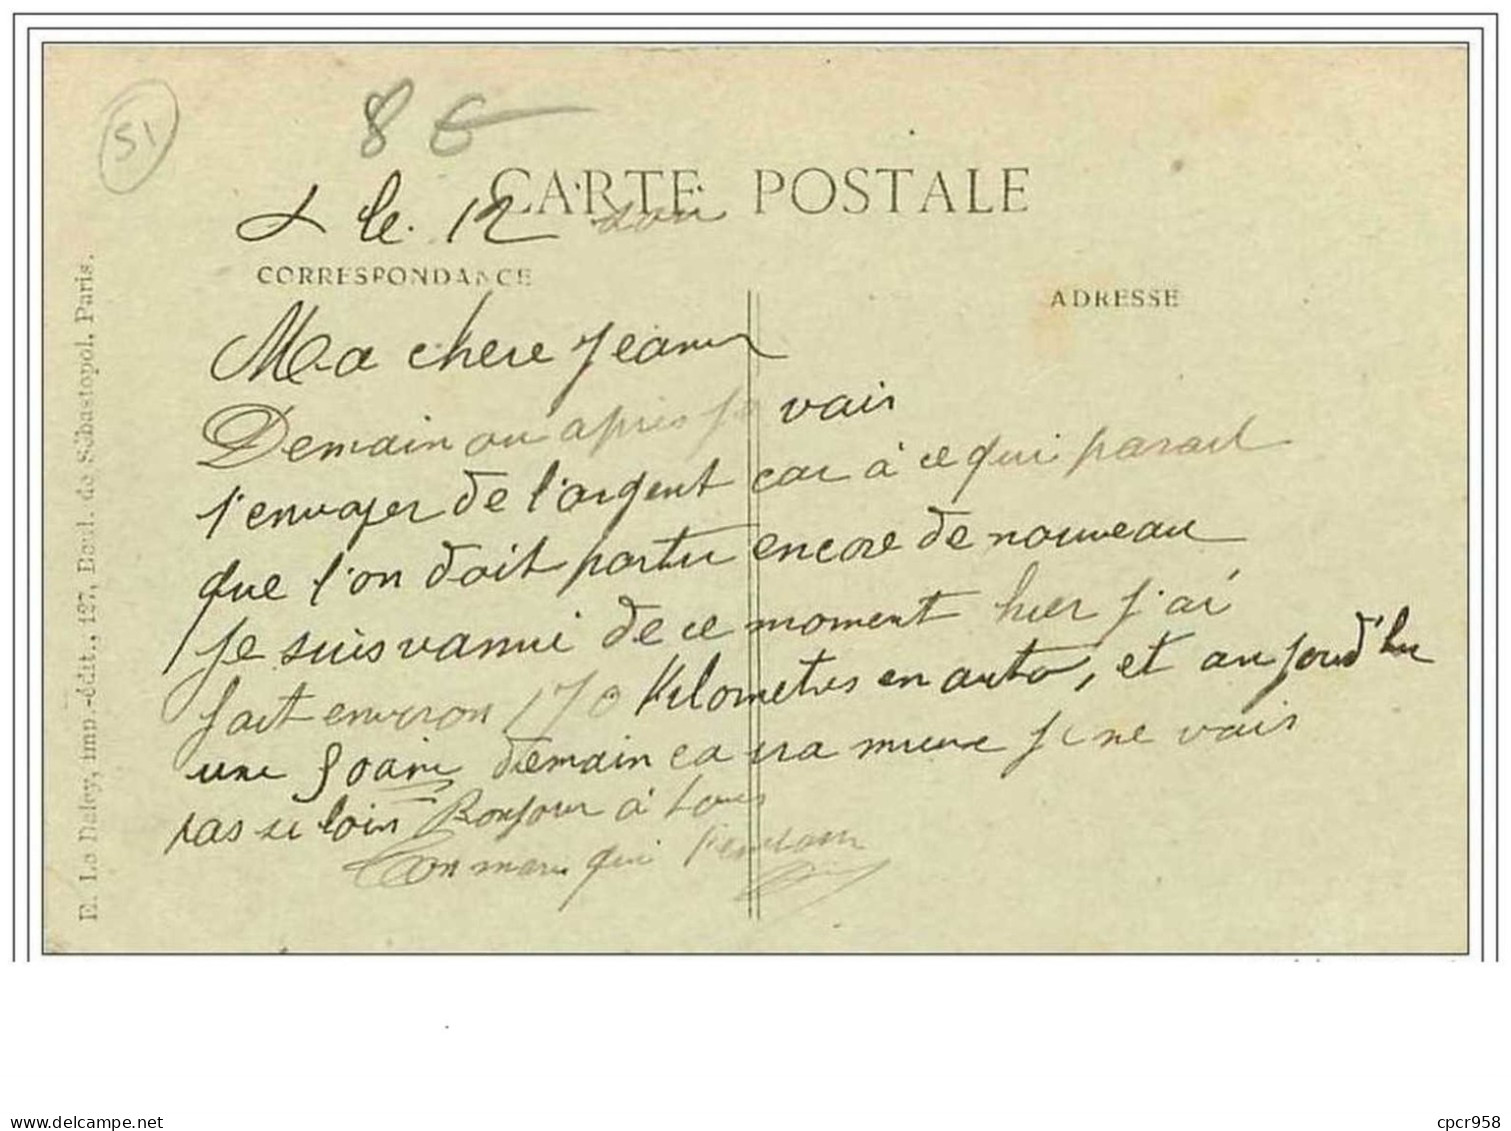 51
8€
CARTE POSTALE
le 12
CORRESPONDANCE
ADRESSE
Ma chere Jeanne
Demain ou apres je vais
t'envoyer de l'argent car à ce qui parait
que l'on doit partir encore de nouveau
je suis vannui de ce moment hier j'ai
fait environ 170 Kilometres en auto, et aujourd'hu
une demain ca ira mieux je ne vais
pas si loin Bonjour à tous
Ton mari qui
E. Le Deley, imp.-édit., 127, Boul. de Sébastopol, Paris.
delcampe.net
cpcr958